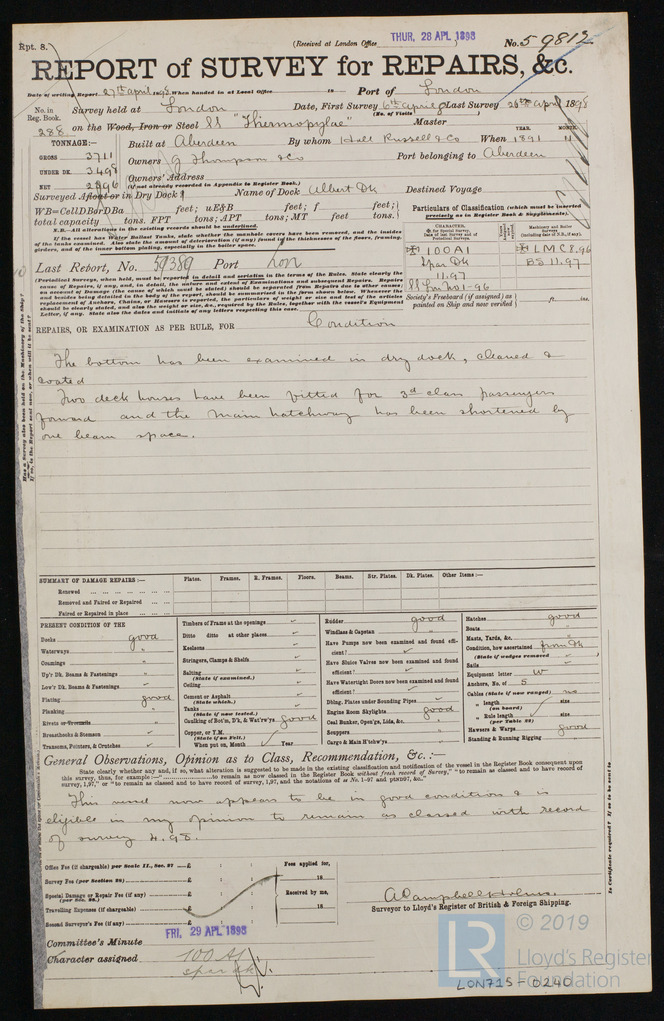 Rpt. 8.
(Received at London Office THUR, 28 APL 1898)
No. 59812
REPORT of SURVEY for REPAIRS, &c.
Date of writing Report 27th April 1898 When handed in at Local Office 18 Port of London
No. in Reg. Book. Survey held at London Date, First Survey 6th April Last Survey 26th April 1898
(No. of Visits )
288 on the Wood, Iron or Steel SS "Thermopylae" Master
TONNAGE:— Built at Aberdeen By whom Hall Russell & Co When 1891 11
YEAR. MONTH.
GROSS 3711 Owners G Thompson & Co Port belonging to Aberdeen
UNDER DK. 3498 Owners' Address
NET (if not already recorded in Appendix to Register Book.)
Surveyed Afloat or in Dry Dock? Name of Dock Albert Dk Destined Voyage
WB=CellDBorDBa feet; uE&B feet; f feet;
total capacity tons. FPT tons; APT tons; MT feet tons.
Particulars of Classification (which must be inserted precisely as in Register Book & Supplements).
N.B.—All alterations in the existing records should be underlined.
If the vessel has Water Ballast Tanks, state whether the manhole covers have been removed, and the insides of the tanks examined. Also state the amount of deterioration (if any) found in the thicknesses of the floors, framing, girders, and of the inner bottom plating, especially in the boiler space.
CHARACTER.
100A1
Spar Dk
11.97
SS Lon No1-96
LMC 8.96
BS 11.97
Last Report, No. 59389 Port Lon
Society's Freeboard (if assigned) as painted on Ship and now verified ft. ins.
REPAIRS, OR EXAMINATION AS PER RULE, FOR Condition
The bottom has been examined in dry dock, cleaned &
coated
Two deck houses have been fitted for 3rd class passengers
forward and the main hatchway has been shortened by
one beam space.
SUMMARY OF DAMAGE REPAIRS:— Plates. Frames. R. Frames. Floors. Beams. Str. Plates. Dk. Plates. Other Items:—
Renewed
Removed and Faired or Repaired
Faired or Repaired in place
PRESENT CONDITION OF THE
Decks good
Waterways "
Coamings "
Up'r Dk. Beams & Fastenings "
Low'r Dk. Beams & Fastenings
Plating good
Planking
Rivets or Treenails "
Breasthooks & Stemson
Transoms, Pointers, & Crutches
Timbers of Frame at the openings
Ditto ditto at other places
Keelsons
Stringers, Clamps & Shelfs
Salting
(State if examined.)
Ceiling
Cement or Asphalt
(State which.)
Tanks
(State if now tested.)
Caulking of Bot'm, D'k, & Wat'rw'ys good
Copper, or Y.M.
(State if on Felt.)
When put on, Month Year
Rudder good
Windlass & Capstan "
Have Pumps now been examined and found efficient?
Have Sluice Valves now been examined and found efficient?
Have Watertight Doors now been examined and found efficient?
Dblng. Plates under Sounding Pipes
Engine Room Skylights good
Coal Bunker, Open'gs, Lids, &c. "
Scuppers "
Cargo & Main H'tchw'ys "
Hatches good
Boats "
Masts, Yards, &c. "
Condition, how ascertained from Dk
(State if wedges removed )
Sails
Equipment letter W
Anchors, No. of 5
Cables (State if now ranged) no
" length (on board) size
" Rule length (per Table 22) size
Hawsers & Warps good
Standing & Running Rigging "
General Observations, Opinion as to Class, Recommendation, &c. :—
State clearly whether any, and if so, what alteration is suggested to be made in the existing classification and notification of the vessel in the Register Book consequent upon
this survey, thus, for example:—" to remain as now classed in the Register Book without fresh record of Survey," "to remain as classed and to have record of
survey, 1,97," or "to remain as classed and to have record of survey, 1,97, and the notations of ss No. 1-97 and ptND97, &c."
This vessel now appears to be in good condition & is
eligible in my opinion to remain as classed with record
of survey 4.98.
Office Fee (if chargeable) per Scale II., Sec. 27 £
Survey Fee (per Section 28) £
Special Damage or Repair Fee (if any) (per Sec. 28.) £
Travelling Expenses (if chargeable) £
Second Surveyor's Fee (if any) £
Fees applied for, 18
Received by me, 18
A Campbell Holms
Surveyor to Lloyd's Register of British & Foreign Shipping.
Committee's Minute FRI, 29 APL 1898
Character assigned 100 A1
spar dk
© 2019
LR
Lloyd's Register
Foundation
LON715-0240